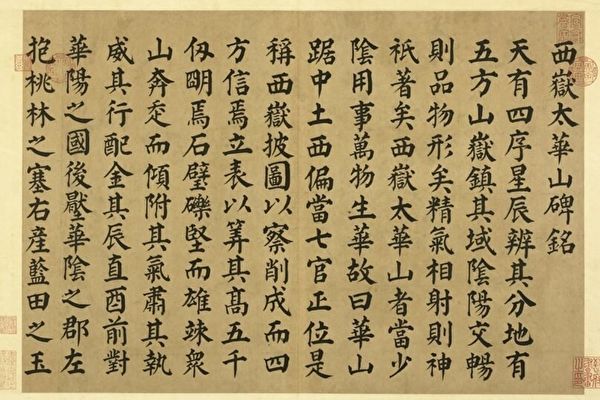 西嶽太華山碑銘
天有四序星辰辨其分地有
五方山嶽鎮其域陰陽交暢
則品物形矣精氣相射則神
祇著矣西嶽太華山者當少
陰用事萬物生華故曰華山
踞中土西偏當七官正位是
稱西嶽披圖以察削成而四
方信焉立表以筭其髙五千
仭明焉石壁礫堅而雄竦衆
山奔走而傾附其氣肅其執
威其行配金其辰直酉前對
華陽之國後壓華陰之郡左
抱桃林之塞右產藍田之玉